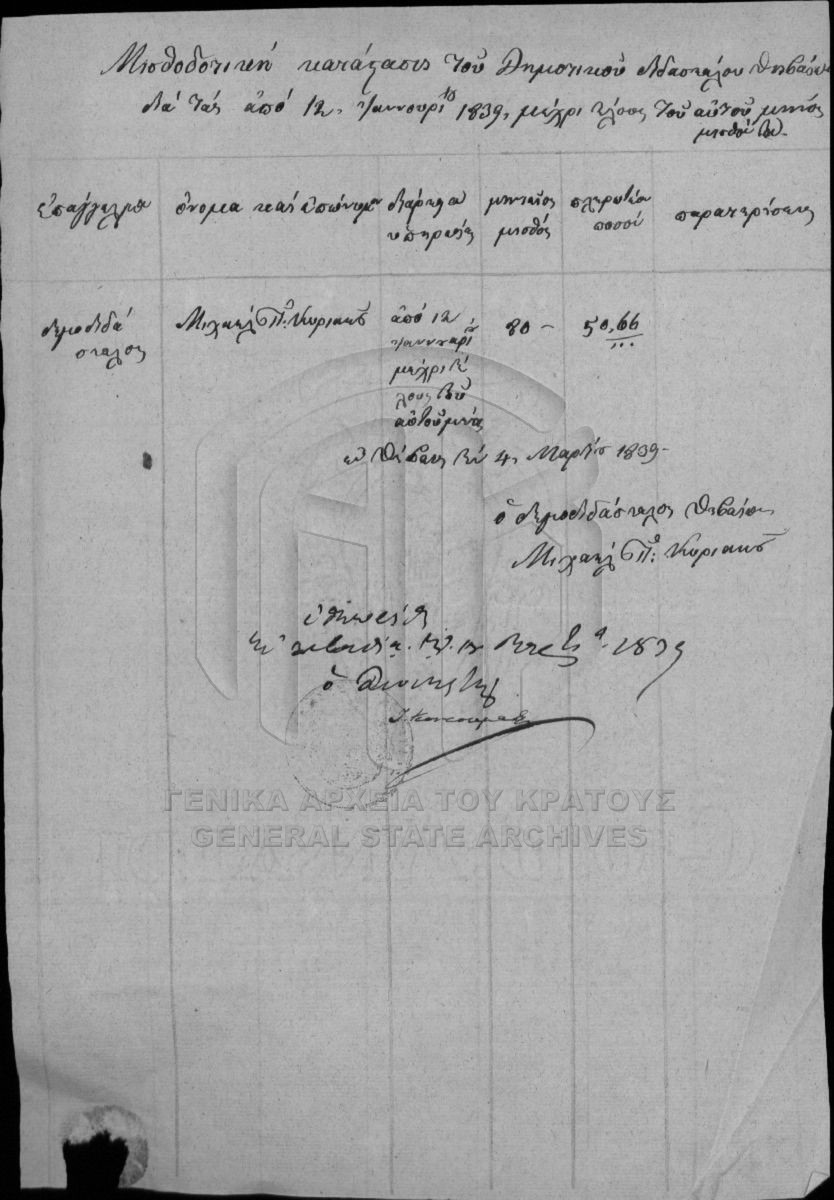 Μισθοδοτική κατάστασις τοῦ Δημοτικοῦ διδασκάλου Θηβαίων
διά τάς ἀπό 12, Ἰαννουρίου 1839, μέχρι τέλους τοῦ αὐτοῦ μηνός
μισθούς του.
ἐπάγγελμα ὄνομα καί ἐπώνυμον διάρκεια ὑπηρεσίας μηνιαῖος μισθός πληρωτέα ποσσά παρατηρήσεις
δημοδιδάσκαλος Μιχαήλ Π: Κυριακοῦ 80 – 50,66
ἀπό 12
Ἰαννουαρίου
μέχρι τέ
λους τοῦ
αὐτοῦ μηνός
ἐν Θήβαις τήν 4, Μαρτίου 1839-
ὁ δημοδιδάσκαλος Θηβαίων
Μιχαήλ Π: Κυριακοῦ
ἐθεωρήθη
1839
ὁ Διοικητής
ΓΕΝΙΚΑ ΑΡΧΕΙΑ ΤΟΥ ΚΡΑΤΟΥΣ
GENERAL STATE ARCHIVES